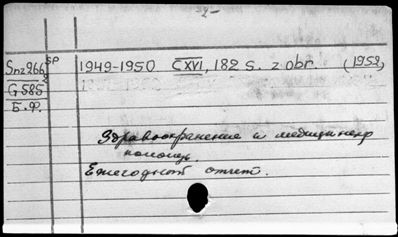 -2-
Snz966 SP 1949-1950 CXVI, 182 s. z obr. (1952)
G585
Б.Ф.
Здравоохранение и медицинскую
помощь.
Ежегодный отчет.